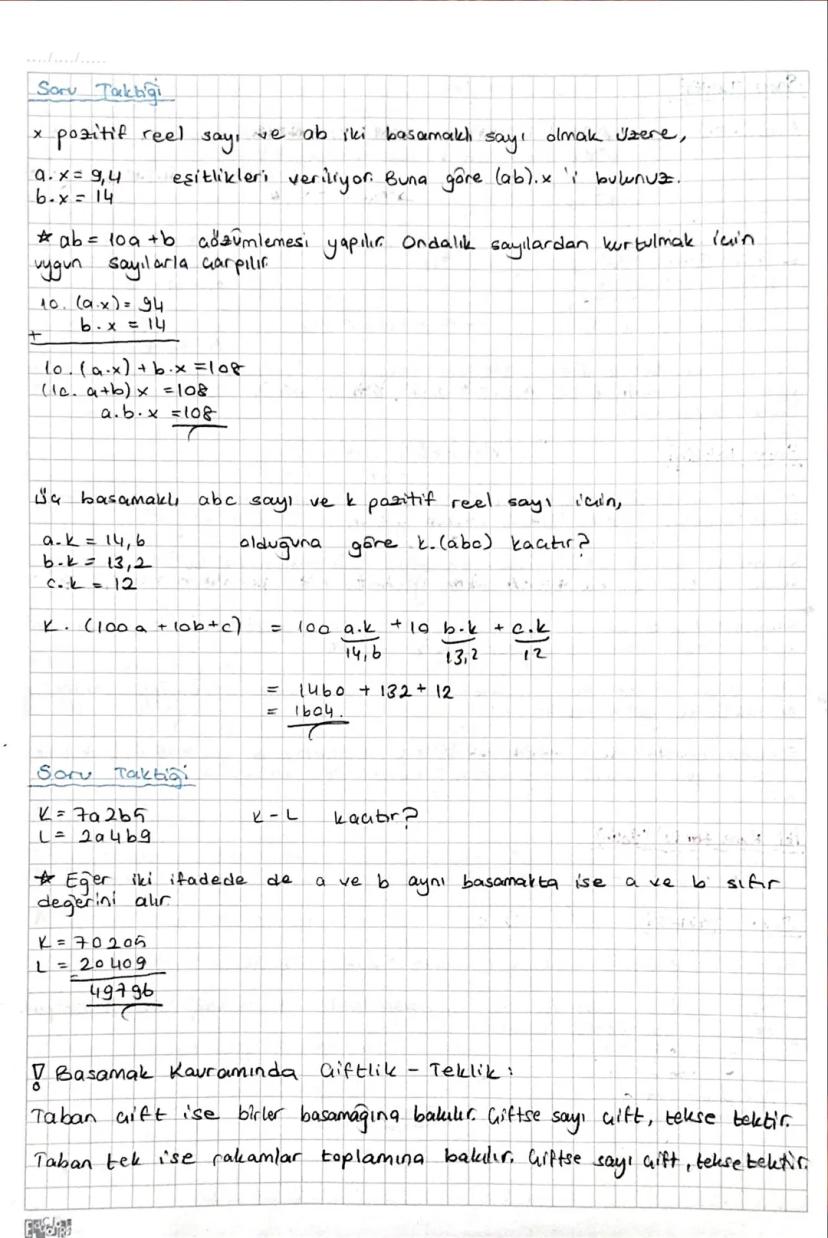 Soru Taktiği
x pozitif reel sayı ve ab iki basamaklı sayı olmak üzere,
a.x = 9,4 eşitlikleri veriliyor. Buna göre (ab).x 'i bulunuz.
b.x = 14
☆ ab = 10a + b çözümlemesi yapılır. Ondalık sayılardan kurtulmak için
uygun sayılarla çarpılır.
10. (a.x) = 94
+ b.x = 14
10. (a.x) + b.x = 108
(10. a+b) x = 108
a.b.x = 108
Üç basamaklı abc sayı ve k pozitif reel sayı için,
a.k = 14,6 olduğuna göre k.(abc) kaçtır?
b.k = 13,2
c.k = 12
K. (100a + 10b + c) = 100 a.k + 10 b.k + c.k
14,6 13,2 12
= 1460 + 132 + 12
= 1604.
Soru Taktiği
K = 7a2b5 K - L kaçtır?
L = 2a4b9
☆ Eğer iki ifadede de a ve b aynı basamakta ise a ve b sıfır
değerini alır.
K = 70205
L = 20409
49796
! Basamak Kavramında Çiftlik - Teklik :
Taban çift ise birler basamağına bakılır. Çiftse sayı çift, tekse tektir.
Taban tek ise rakamlar toplamına bakılır. Çiftse sayı çift, tekse tektir.